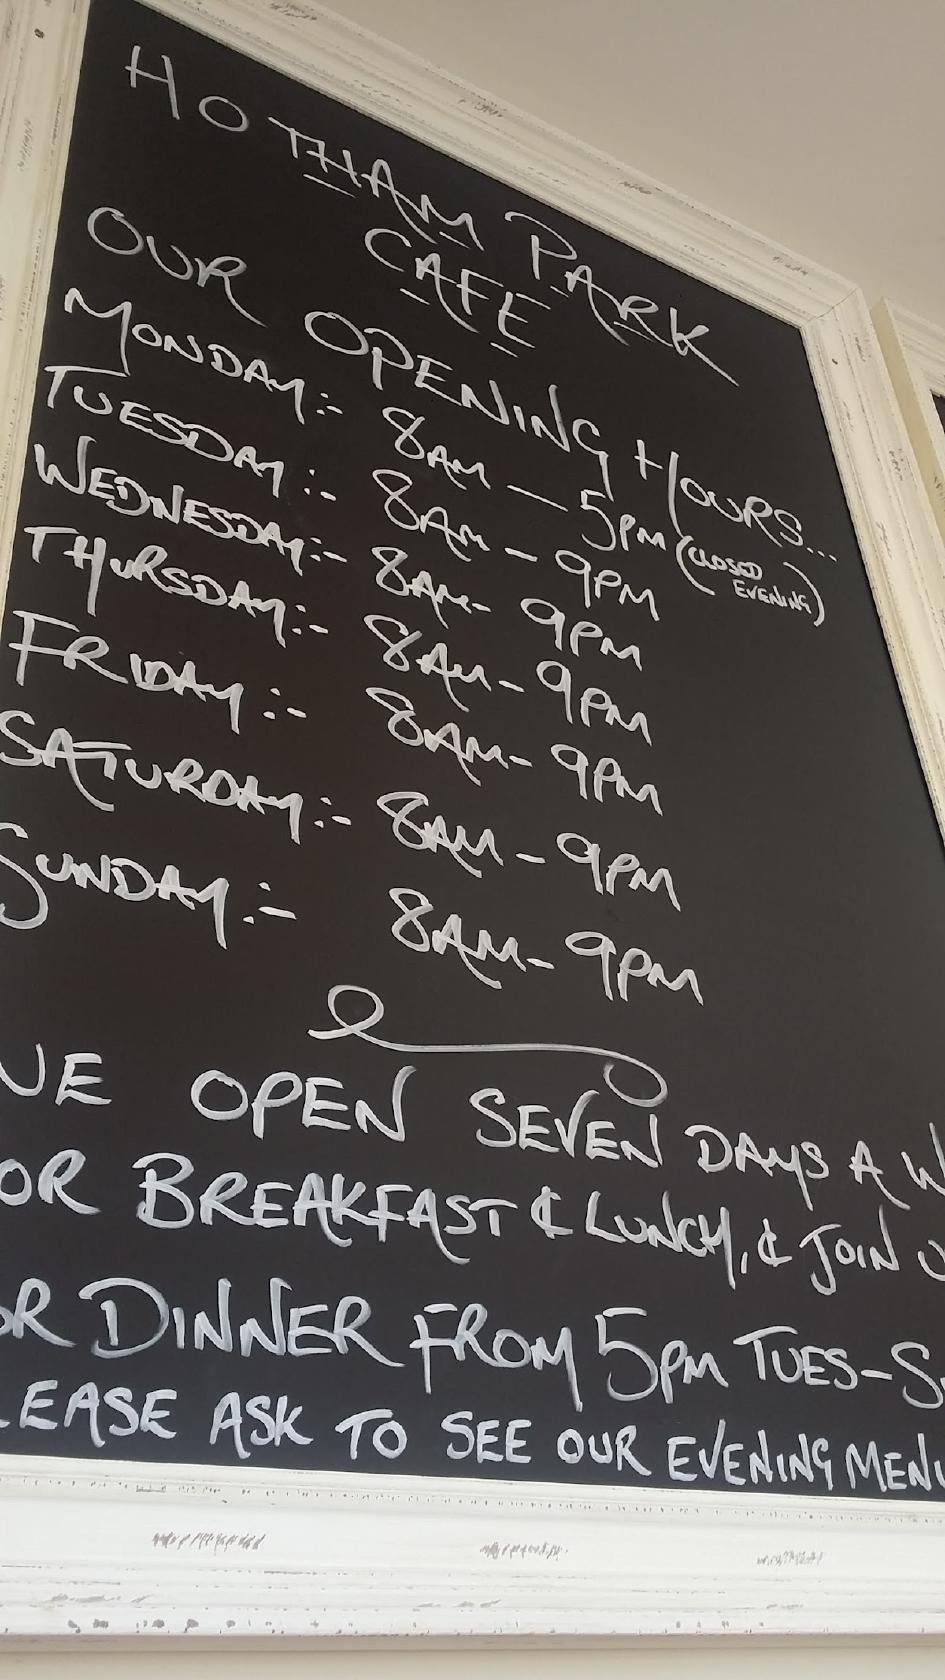 HOTHAM PARK
CAFE
OUR OPENING HOURS...
MONDAY:- 8AM — 5PM (CLOSED EVENING)
TUESDAY:- 8AM - 9PM
WEDNESDAY:- 8AM- 9PM
THURSDAY:- 8AM- 9PM
FRIDAY:- 8AM- 9PM
SATURDAY:- 8AM- 9PM
SUNDAY:- 8AM- 9PM
OPEN SEVEN DAYS A
OR BREAKFAST & LUNCH, & JOIN
OR DINNER FROM 5PM TUES-S
LEASE ASK TO SEE OUR EVENING MENU